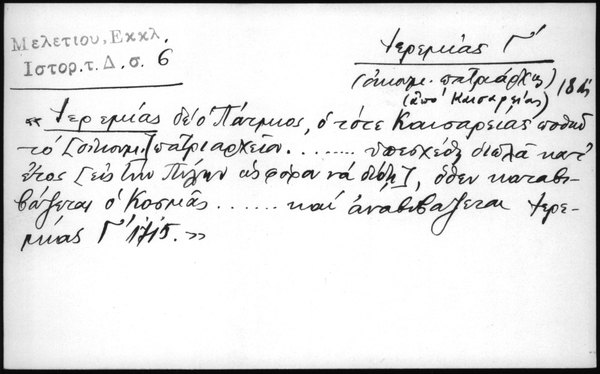 Μελετίου, Εκκλ.
Ιστορ. τ. Δ, σ. 6
Ιερεμίας Γ΄
(οἰκουμ. πατριάρχης)
(ἀπὸ Καισαρείας)
«Ιερεμίας δέ ὁ Πάτμιος, ὁ τότε Καισαρείας ποθῶν
τὸ [οἰκουμ.] πατριαρχεῖον ........ ὑπεσχέθη διπλᾶ κατ'
ἔτος [εἰς τὴν Πύλην εἰσφορὰ νὰ δίδῃ], ὅθεν καταβι-
βάζεται ὁ Κοσμᾶς ...... καὶ ἀναβιβάζεται Ιερε-
μίας Γ΄ 1715.»